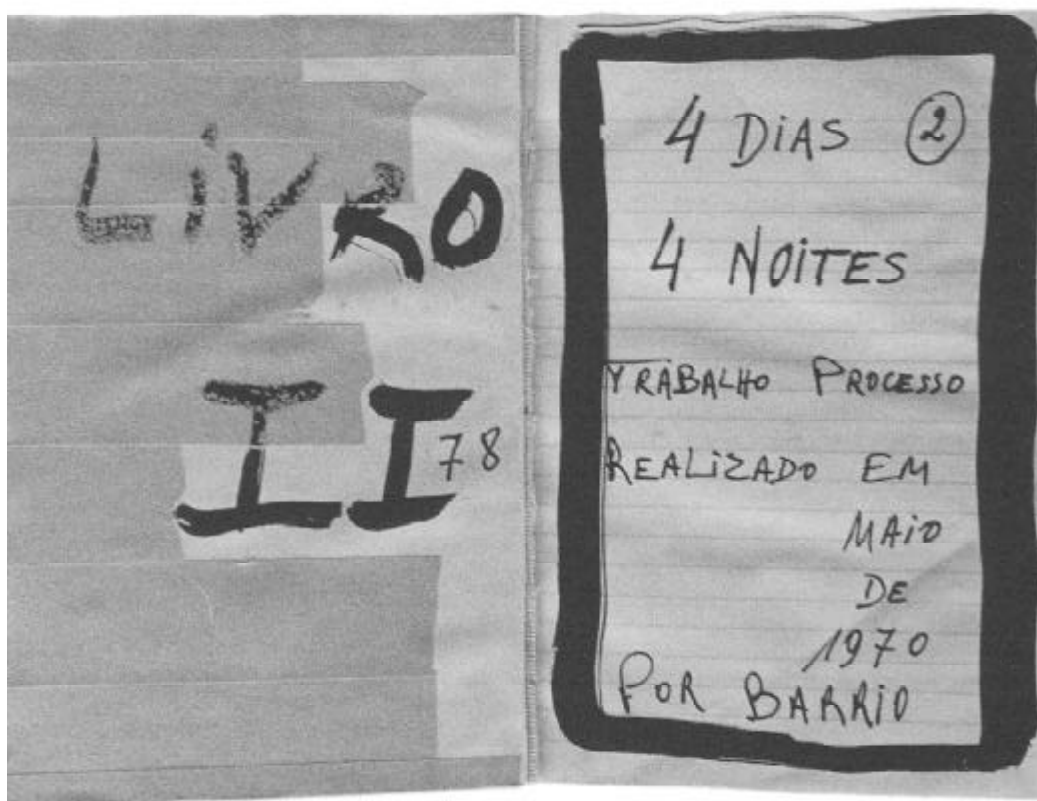 LiVRO
II 78
4 DiAS 2
4 NOiTES
TRABALHO PROCESSO
REALiZADO EM
MAiO
DE
1970
POR BARRiO